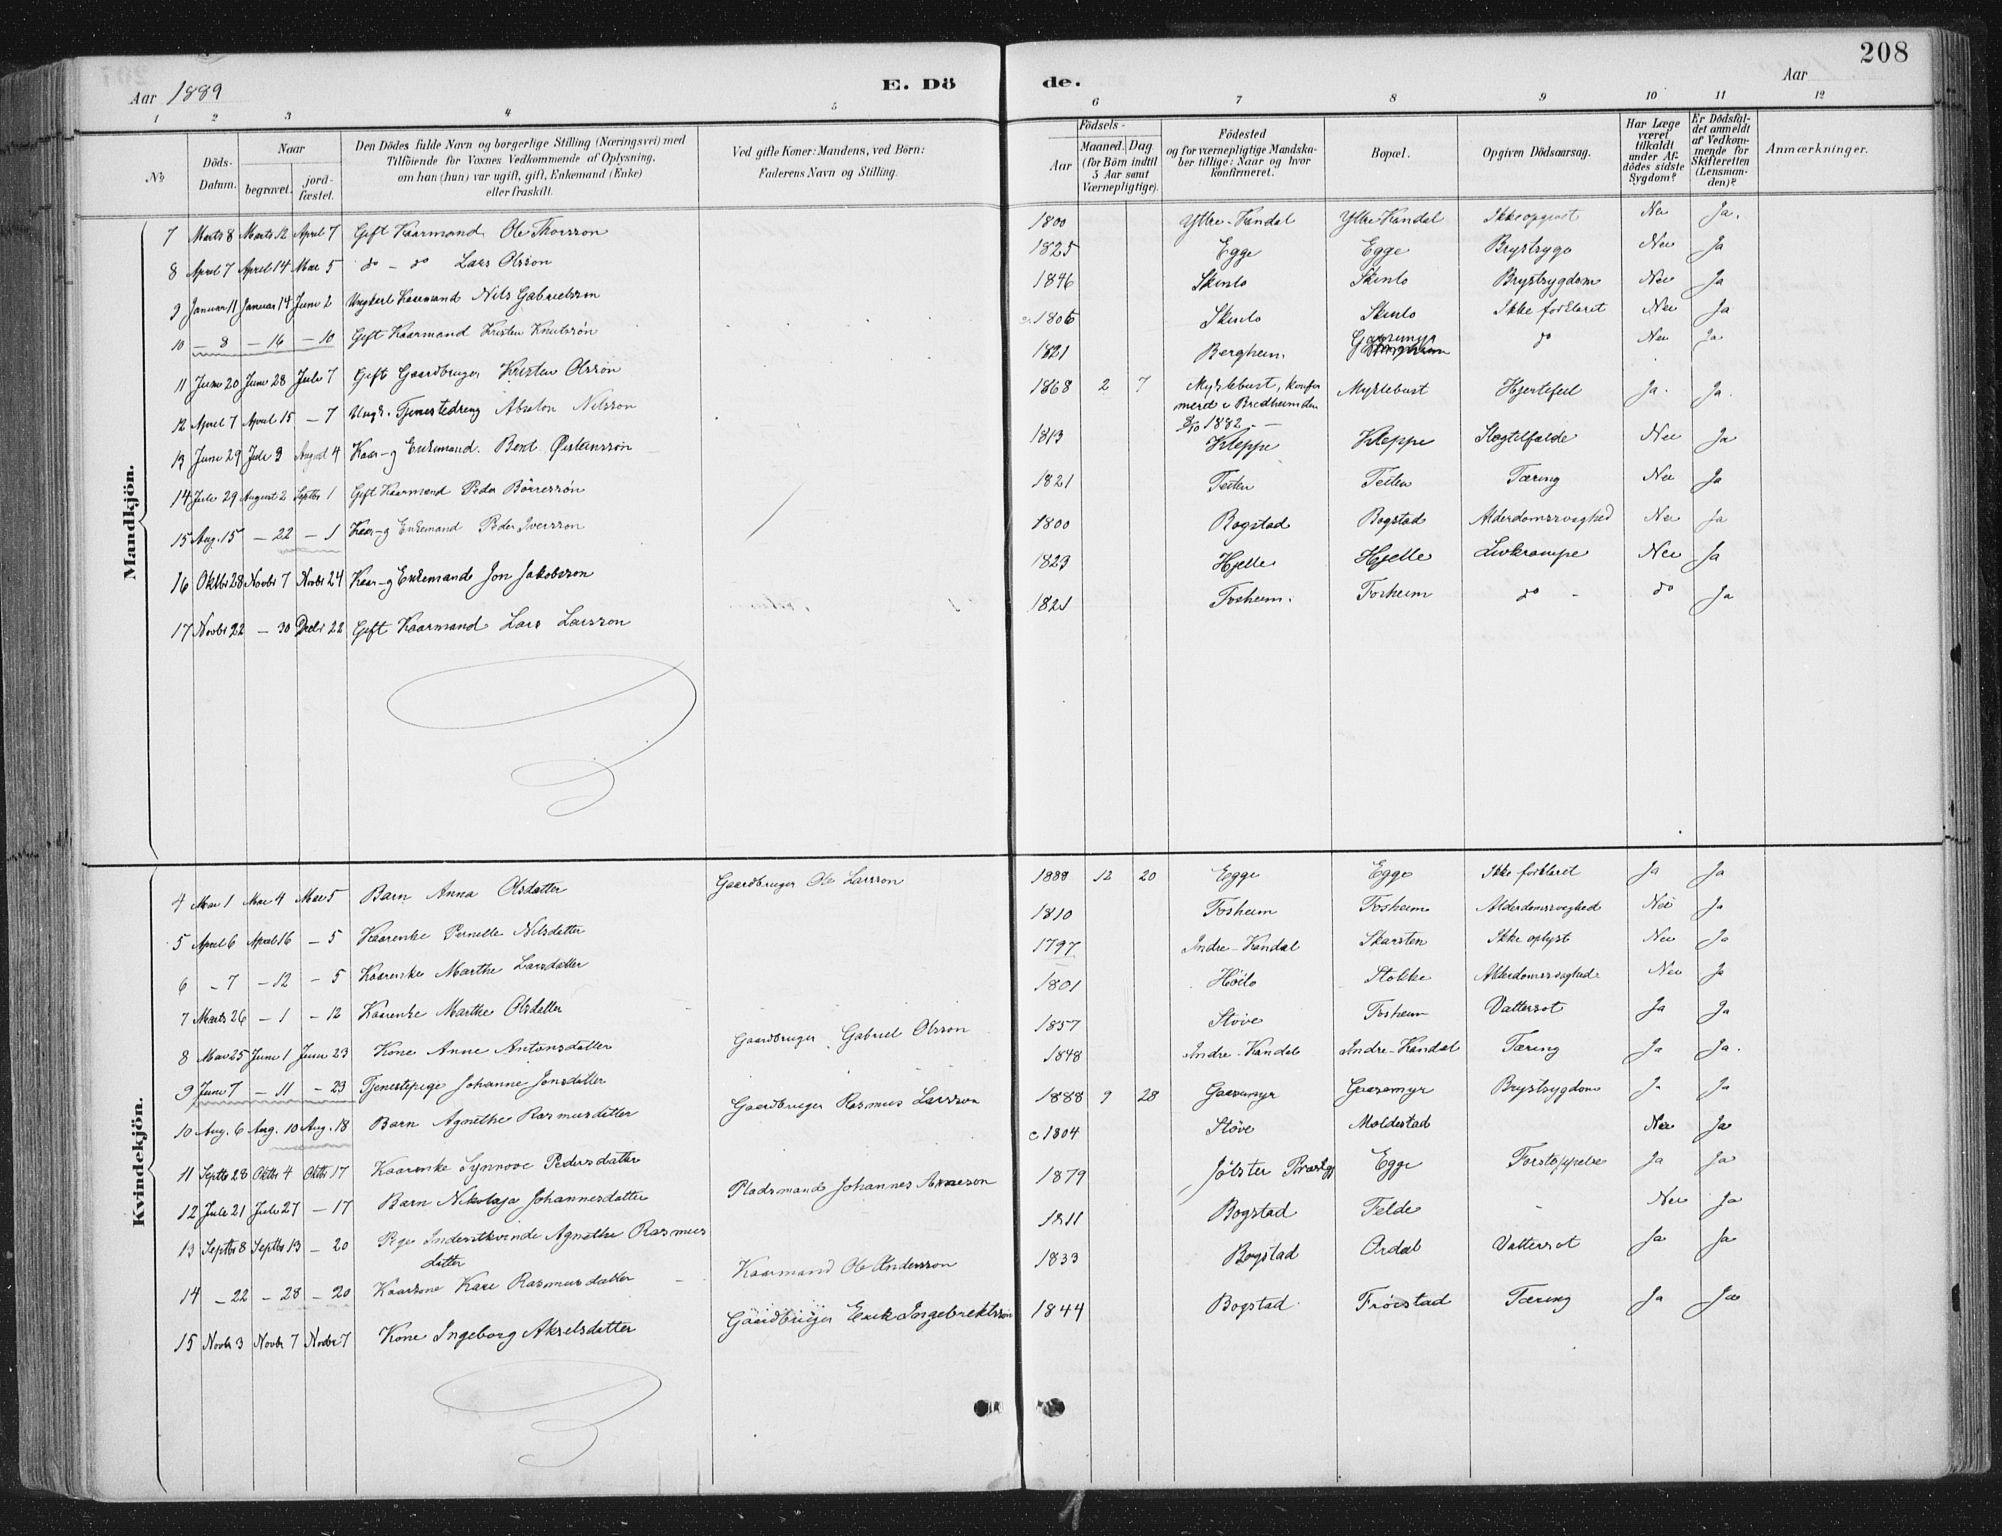 208
Aar 1889
E. Dö de.
Aar
1 2 3 4 5 6 7 8 9 10 11 12
No
Döds-Datum.
Naar
begravet.
jord-fæstet.
Den Dödes fulde Navn og borgerlige Stilling (Næringsvei) med
Tilföiende for Voxnes Vedkommende af Oplysning,
om han (hun) var ugift, gift, Enkemand (Enke)
eller fraskilt.
Ved gifte Koner: Mandens, ved Börn:
Faderens Navn og Stilling.
Födsels-
Aar
Maaned. Dag
(for Börn indtil
5 Aar samt
Værnepligtige).
Födested
og for værnepligtige Mandska-
ber tillige: Naar og hvor
konfirmeret.
Bopæl.
Opgiven Dödsaarsag.
Har Læge
været
tilkaldt
under Af-
dödes sidste
Sygdom?
Er Dödsfal-
det anmeldt
af Vedkom-
mende for
Skifteretten
(Lensman-
den)?
Anmærkninger.
Mandkjön.
7 Marts 8 Marts 12 April 7 Gift Kaarmand Ole Thorsson 1800 Ytre-Kandal Ytre Kandal Ikke opgivet Nei Ja.
8 April 7 April 14 Mai 5 do - do Lars Olsson 1825 Egge Egge Brystsyge Nei Ja
9 Januar 11 Januar 14 Juni 2 Ungkarl Kaarmand Nils Gabrielsson 1846 Skinlo Skinlo Brystsygdom Nei Ja
10 - 8 - 16 - 10 Gift Kaarmand Kristen Knutssön Skinlo Skinlo Ikke forklaret Nei Ja
11 Juni 20 Juni 28 Juli 7 Gift Gaardbruger Kristen Olssön 1821 Berghein do Nei Ja
12 April 7 April 15 - 7 Ungk. Tjenestedreng Absalon Nilsson 1868 2 7 Myklebust, konfir
meret i Bredheim den
1882. Myklebust Hjertefeil Ja. Ja.
13 Juni 29 Juli 3 August 4 Kaar- og Enkemand. Bent Øisteinssön 1813 Kleppe Kleppe Slagtilfælde Nei Ja
14 Juli 29 August 2 Septbr 1 Gift Kaarmand Peder Börressön 1821 Teiten Teiten Tæring Nei Ja
15 Aug. 15 - 22 - 1 Kaar- og Enkemand Peder Iversson 1800 Bogstad Bogstad Alderdomssvaghed Nei Ja
16 Oktbr 28 Novbr 7 Novbr 24 Kaar- og Enkemand Jon Jakobsson 1823 Hjelle Hjelle Livkrampe Nei Ja
17 Novbr 22 - 30 Decbr 22 Gift Kaarmand Lars Larsson 1821 Fosheim. Fosheim do - do Ja
Kvindekjön.
4 Mai 1 Mai 4 Mai 5 Barn Anna Olsdatter Gaardbruger Ole Larsson 1888 12 20 Egge Egge Ikke forklaret Ja Ja
5 April 6 April 16 - 5 Kaarenke Pernelle Nilsdatter 1810 Fosheim Fosheim Alderdomssvaghed Nei Ja
6 - 7 - 12 - 5 Kaarenke Marthe Larsdatter 1797 Indre-Kandal Skarsten Ikke oplyst Nei Ja
7 Marts 26 - 1 - 12 Kaarenke Marthe Olsdatter 1801 Höilo Stokke Alderdomssvaghed Nei Ja
8 Mai 25 Juni 1 Juni 23 Kone Anne Antonsdatter Gaardbruger Gabriel Olsson 1857 Støve Fosheim Vattersot Ja Ja
9 Juni 7 - 11 - 23 Tjenestepige Johanne Jonsdatter 1848 Indre-Kandal Indre-Kandal Tæring Ja Ja.
10 Aug. 6 Aug. 10 Aug. 18 Barn Agnethe Rasmusdatter Gaardbruger Rasmus Larsson 1888 9 28 Gaasemyr Gaasemyr Brystsygdom Ja Ja
11 Septbr 28 Oktbr 4 Oktbr 17 Kaarenke Synnove Pedersdatter c 1804 Støve Moldestad Nei Ja
12 Juli 21 Juli 27 - 17 Barn Nikolaja Johannesdatter Pladsmand Johannes 1879 Jølster Egge Forstoppelse Ja Ja
13 Septbr 8 Septbr 13 - 20 Pige Inderstkvinde Agnethe Rasmus
datter 1811 Bogstad Felde Nei Ja
14 - 22 - 28 - 20 Kaarkone Kari Rasmusdatter Kaarmand Ole Andersson 1833 Bogstad Ordal Vattersot Ja Ja
15 Novbr 3 Novbr 7 Novbr 7 Kone Ingeborg Akselsdatter Gaardbruger Erik Ingebrektssön 1844 Bogstad Frøistad Tæring Ja Ja